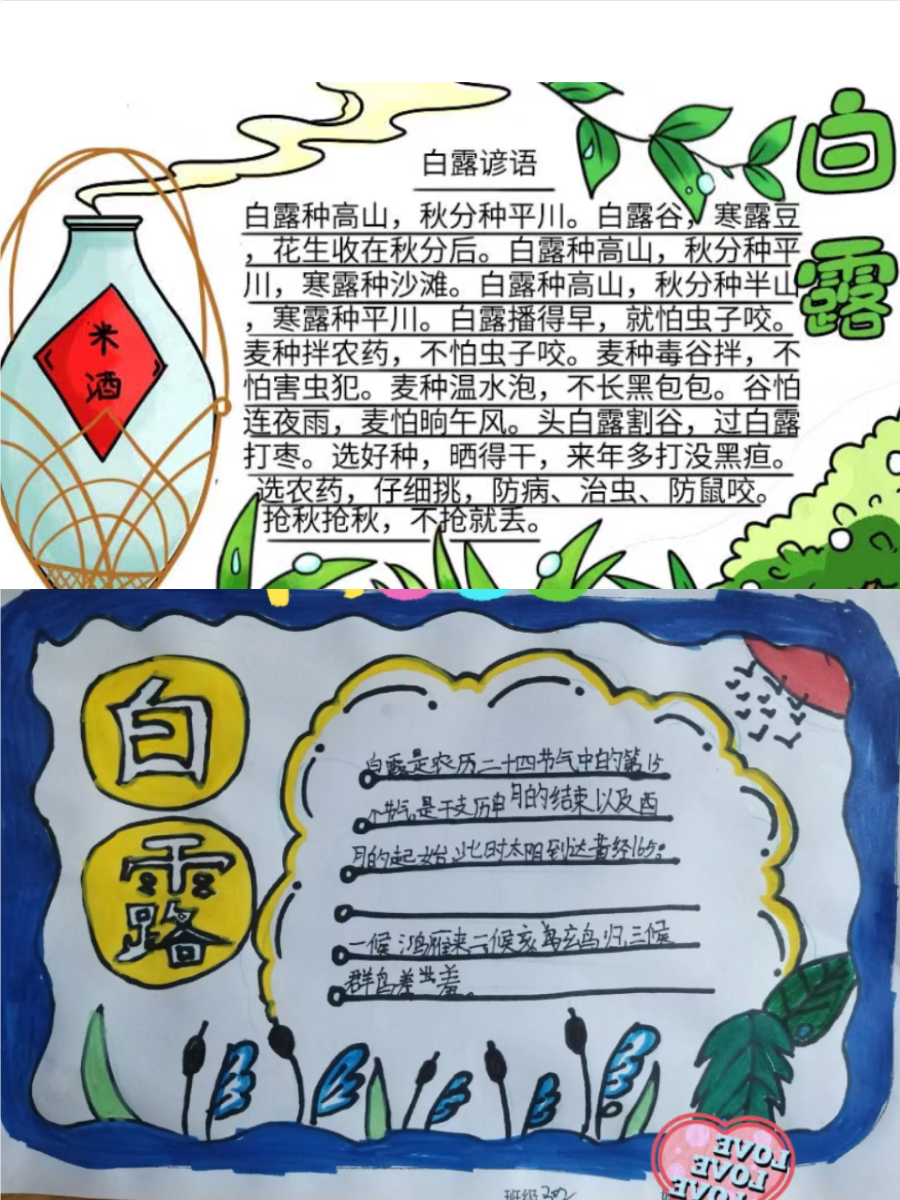 白露
白露谚语
白露种高山，秋分种平川。白露谷，寒露豆
，花生收在秋分后。白露种高山，秋分种平
川，寒露种沙滩。白露种高山，秋分种半山
，寒露种平川。白露播得早，就怕虫子咬。
麦种拌农药，不怕虫子咬。麦种毒谷拌，不
怕害虫犯。麦种温水泡，不长黑包包。谷怕
连夜雨，麦怕晌午风。头白露割谷，过白露
打枣。选好种，晒得干，来年多打没黑疸。
选农药，仔细挑，防病、治虫、防鼠咬。
抢秋抢秋，不抢就丢。
米酒
白露
白露是农历二十四节气中的第15
个节气是干支历申月的结束以及酉
月的起始此时太阳到达黄经165
一候鸿雁来二候玄鸟归三候
群鸟羞
LOVE
LOVE
LOVE
班级202